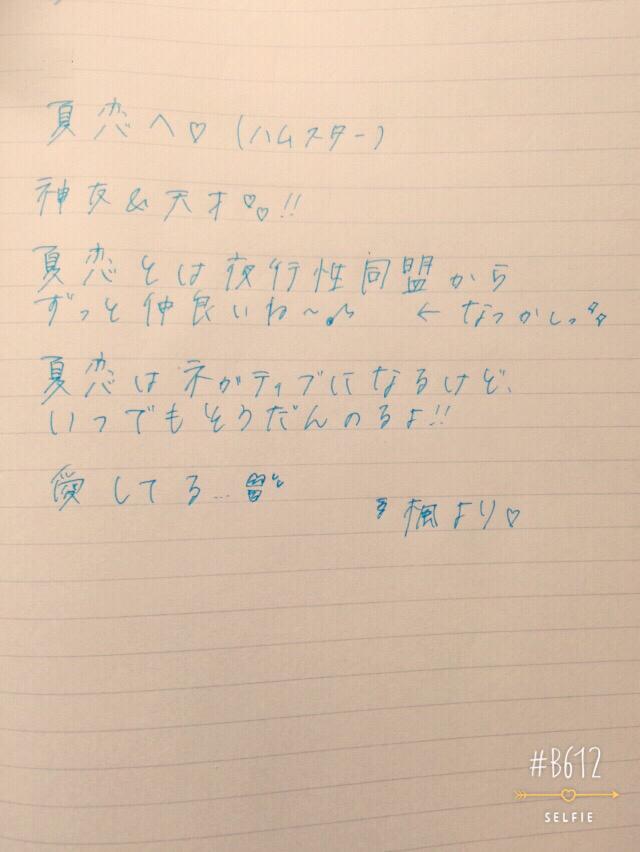 夏恋へ♡ (ハムスター)
神友&天才♡♡!!
夏恋とは夜行性同盟から
ずっと仲良いね〜♪ ← なつかしっ
夏恋はネガティブになるけど、
いつでもそうだんのるよ!!
愛してる...
楓より♡
#B612
SELFIE